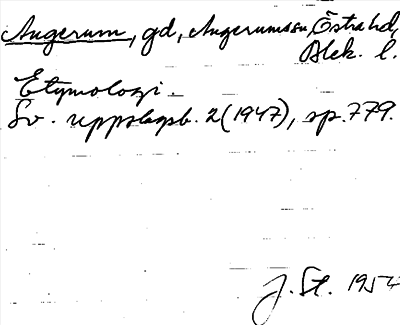 Augerum, gd, Augerums sn, Östra hd,
Blek. l.
Etymologi.
Sv. uppslagsb. 2 (1947), sp. 779.
J. St. 1954